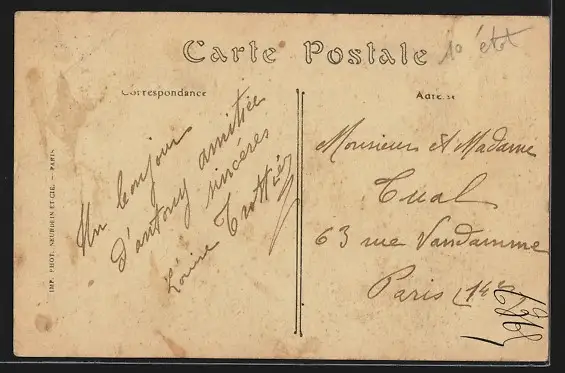 Carte Postale
10 étot
Correspondance
Adresse
Un bonjour
d'antony amitiée
sincéres
Louise Trottier
Monsieur et Madame
Tual
63 rue Vandamme
Paris (14e
IMP. PHOT. NEURDEIN ET CIE. — PARIS